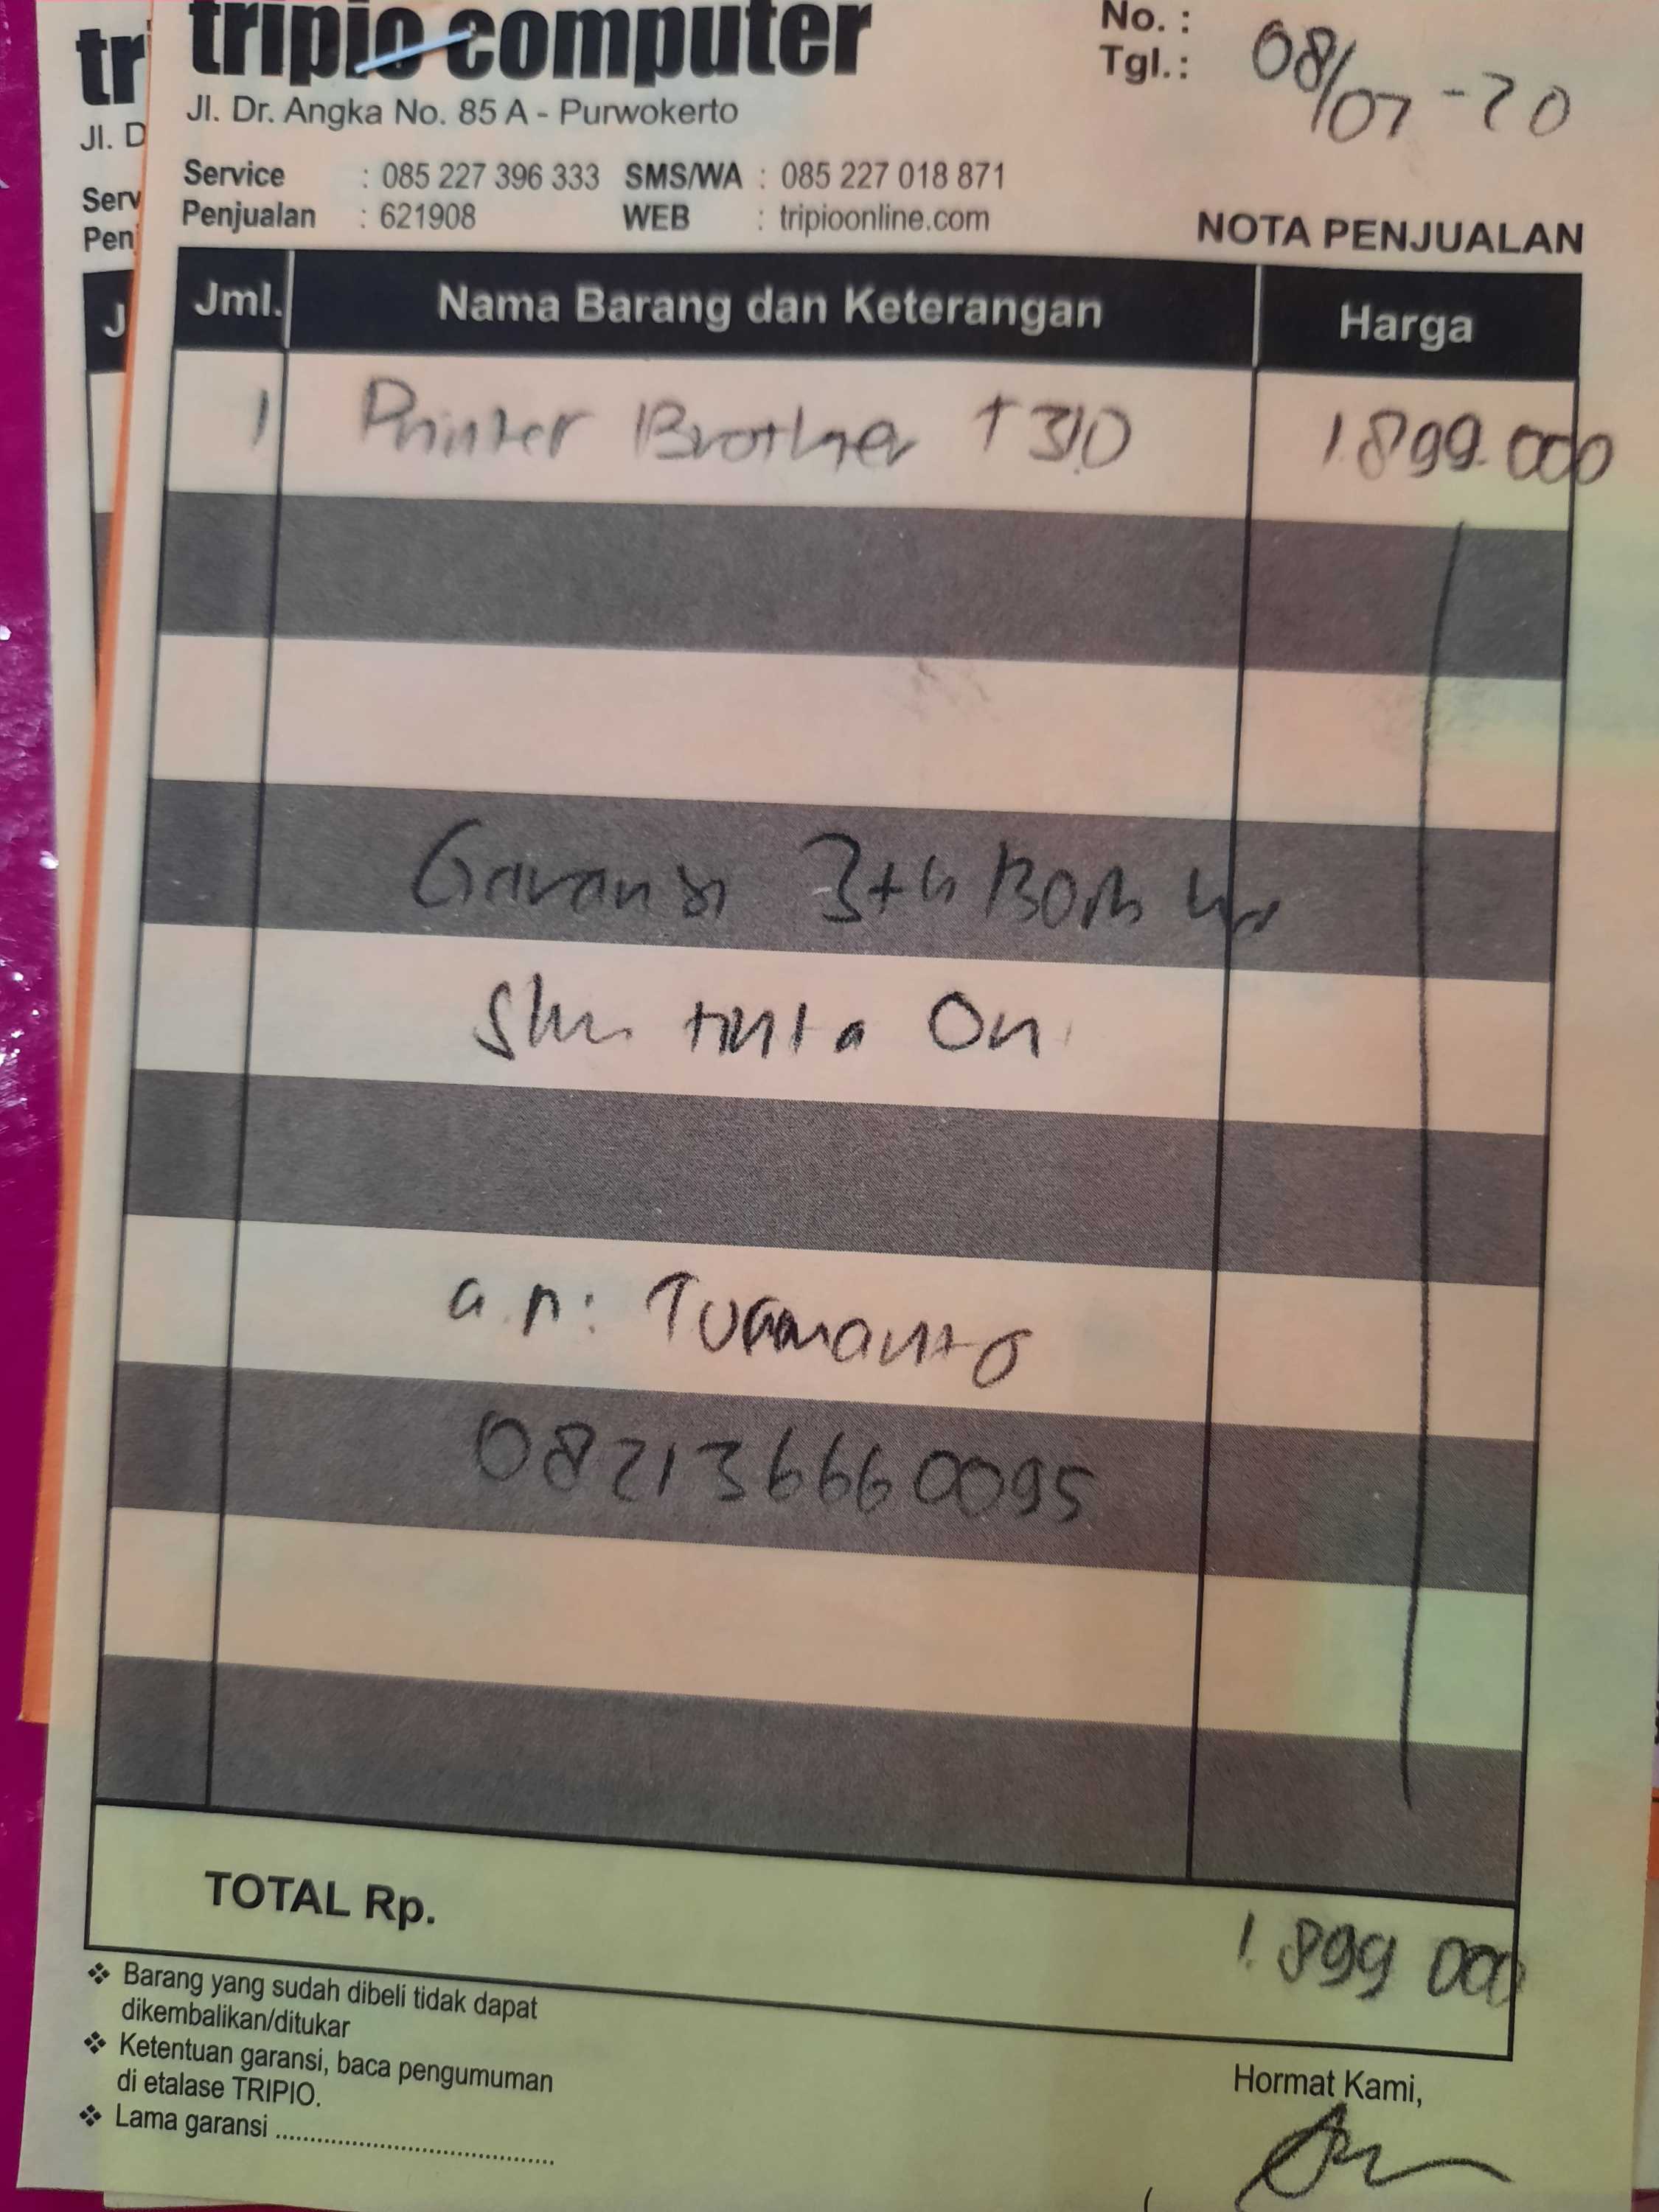 tripio computer
No. :
Tgl. : 08/07 - 20
Jl. Dr. Angka No. 85 A - Purwokerto
Service : 085 227 396 333 SMS/WA : 085 227 018 871
Penjualan : 621908 WEB : tripioonline.com
NOTA PENJUALAN
Jml. Nama Barang dan Keterangan Harga
1 Printer Brother T310 1.899.000
Garansi 3th
tinta On
a.n:
082136660095
TOTAL Rp. 1.899 000
❖ Barang yang sudah dibeli tidak dapat
dikembalikan/ditukar
❖ Ketentuan garansi, baca pengumuman
di etalase TRIPIO.
❖ Lama garansi ........................................
Hormat Kami,
tr
Jl. D
Serv
Penj
J